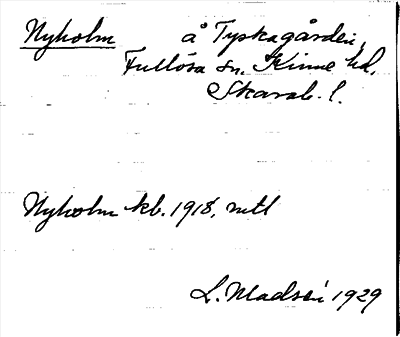 Nyholm å Tyskagården,
Fullösa sn. Kinne hd.
Skarab. l.
Nyholm kb. 1918, mtl
L. Madsén 1929